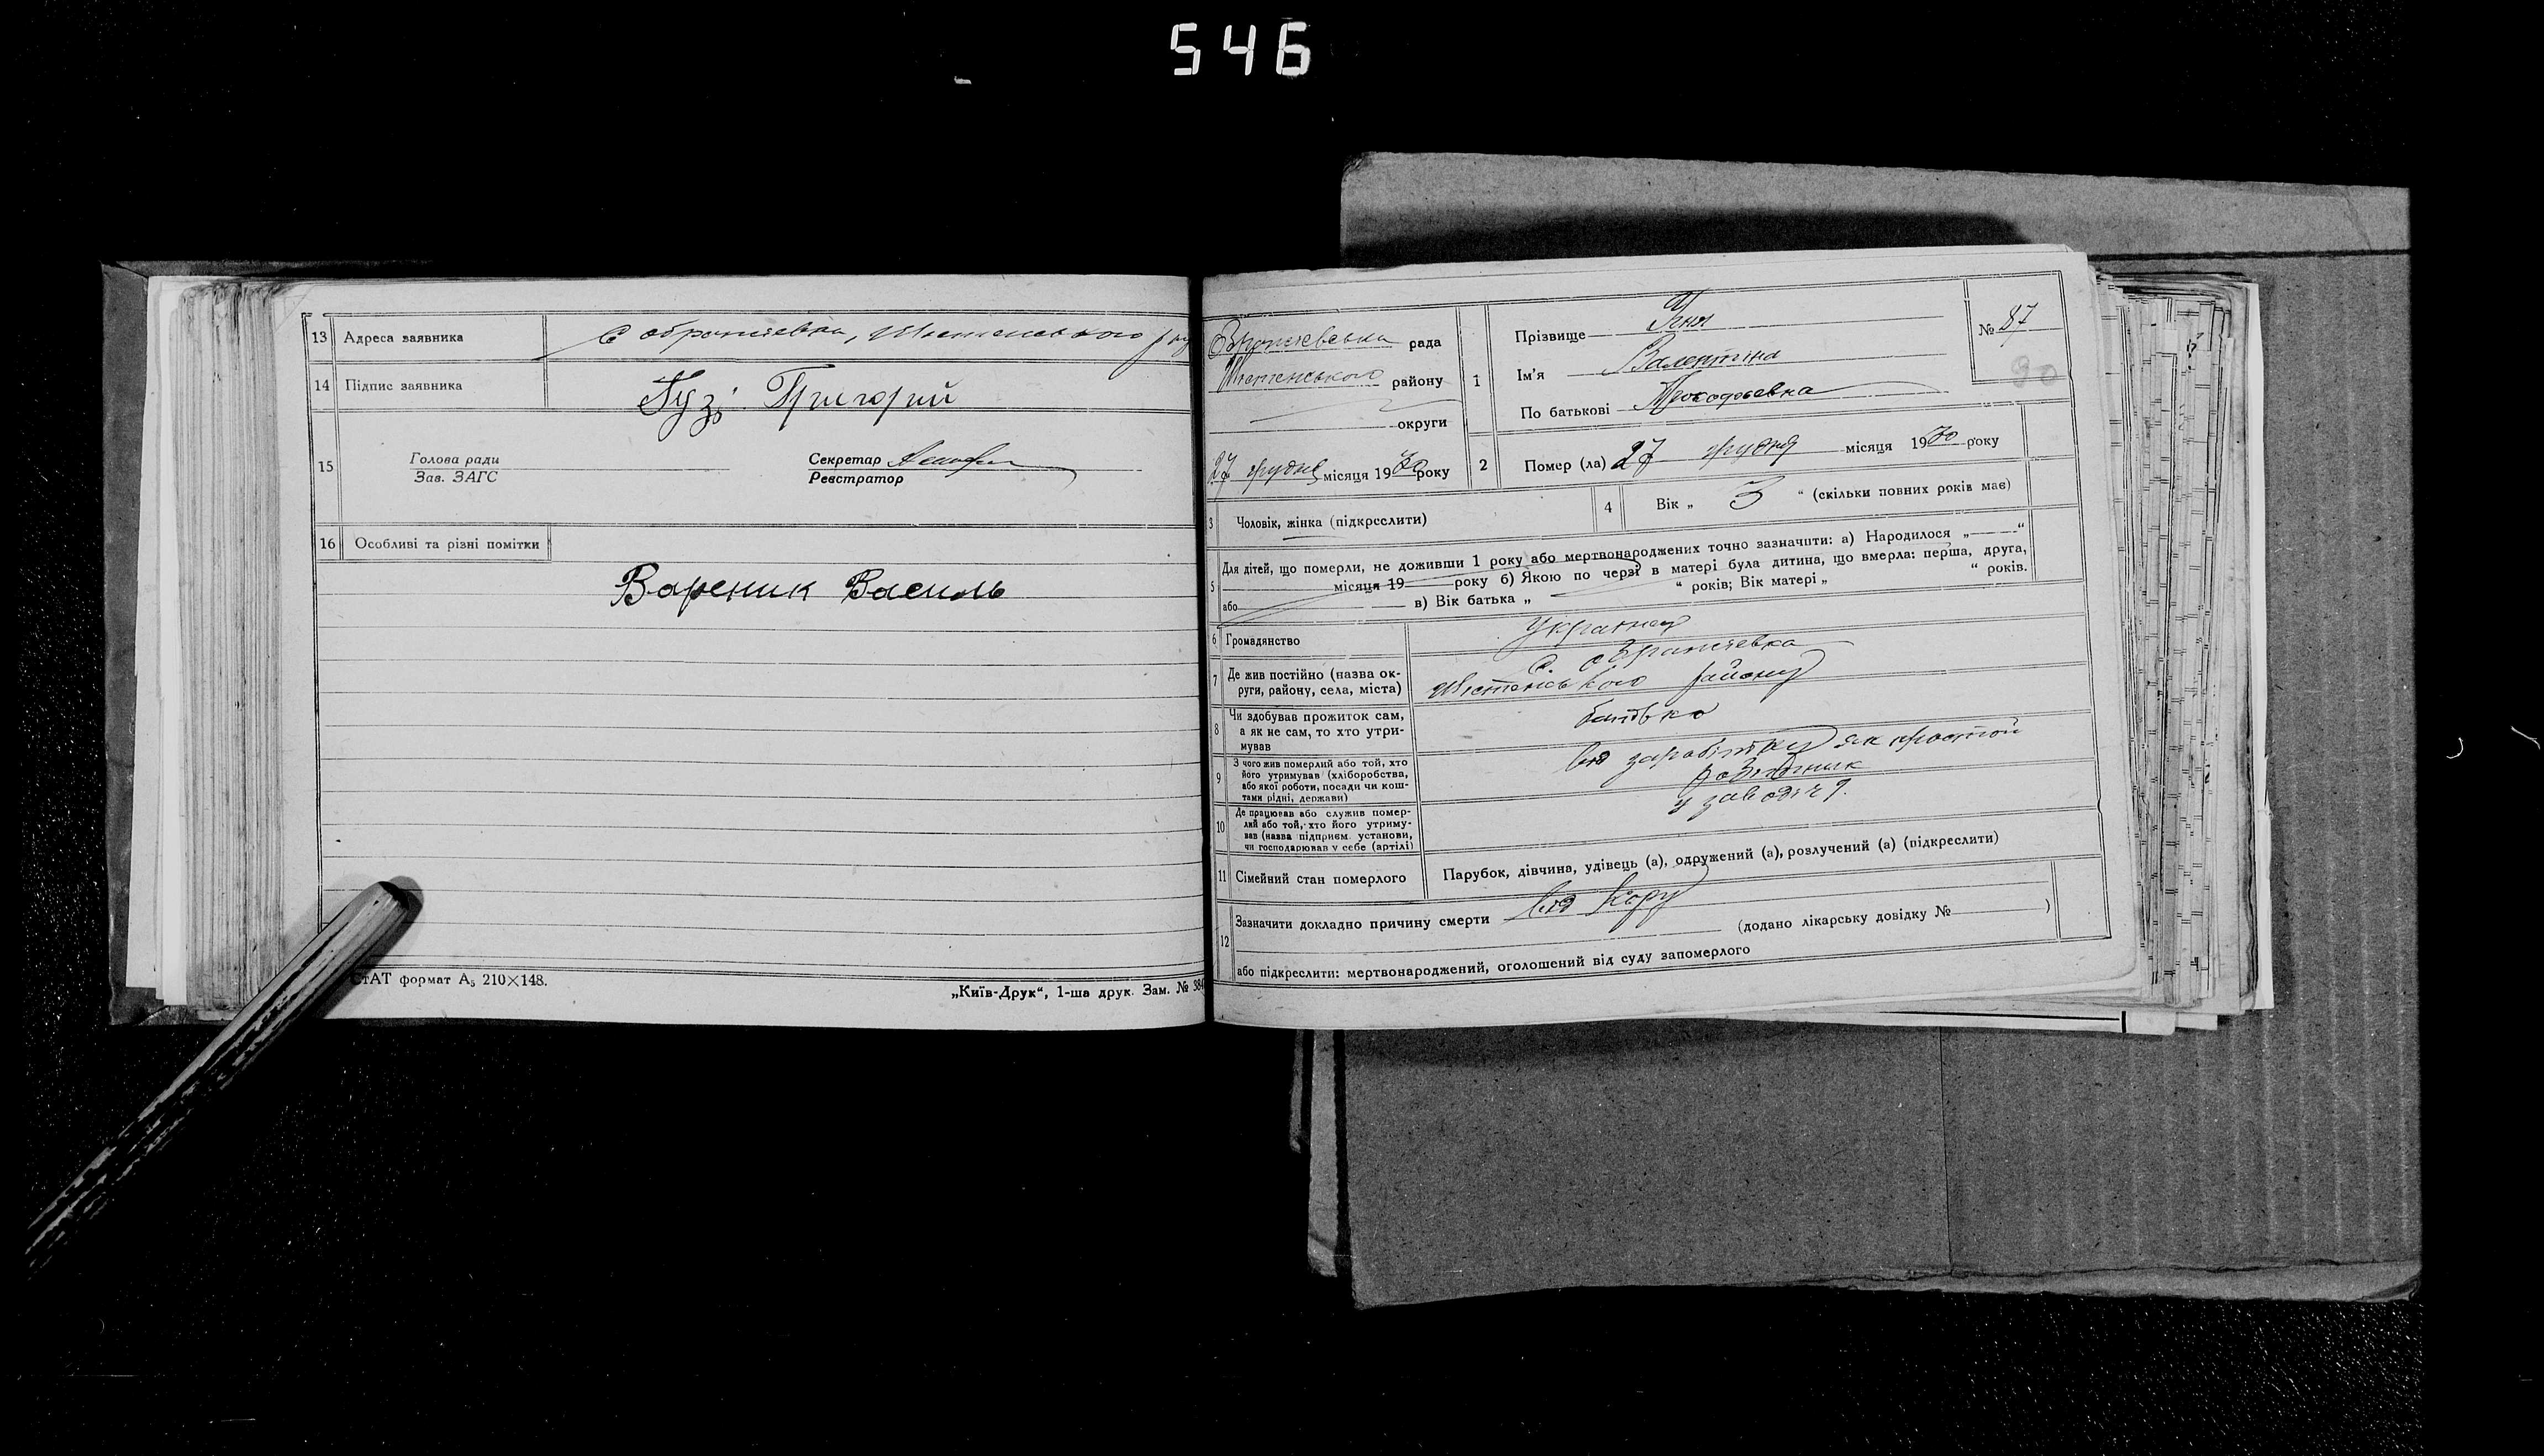 546
13 Адреса заявника
14 Підпис заявника Гузь Григорий
15 Голова ради
Зав. ЗАГС
Секретар
Реєстратор
16 Особливі та різні помітки
Вареник Василь
СтАТ формат А₅ 210×148.
„Київ-Друк“, 1-ша друк. Зам. № 384
рада
району
округи
27 грудня місяця 1930 року
1 Прізвище
Ім'я Валентина
По батькові Прокофьевна
№ 87
90
2 Помер (ла) 27 грудня місяця 1930 року
3 Чоловік, жінка (підкреслити)
4 Вік „ 3 “ (скільки повних років має)
5 Для дітей, що померли, не доживши 1 року або мертвонароджених точно зазначити: а) Народилося „ “
місяця 19 року б) Якою по черзі в матері була дитина, що вмерла: перша, друга,
або в) Вік батька „ “ років; Вік матері „ “ років.
6 Громадянство
7 Де жив постійно (назва ок-
руги, району, села, міста)
с.
району
8 Чи здобував прожиток сам,
а як не сам, то хто утри-
мував
батько
9 З чого жив померлий або той, хто
його утримував (хліборобства,
або якої роботи, посади чи кош-
тами рідні, держави)
від заробітку як простой
робітник
10 Де працював або служив помер-
лий або той, хто його утриму-
вав (назва підприєм. установи,
чи господарював у себе (артілі)
у заводі
11 Сімейний стан померлого
Парубок, дівчина, удівець (а), одружений (а), розлучений (а) (підкреслити)
12 Зазначити докладно причину смерти від кору
(додано лікарську довідку № )
або підкреслити: мертвонароджений, оголошений від суду запомерлого